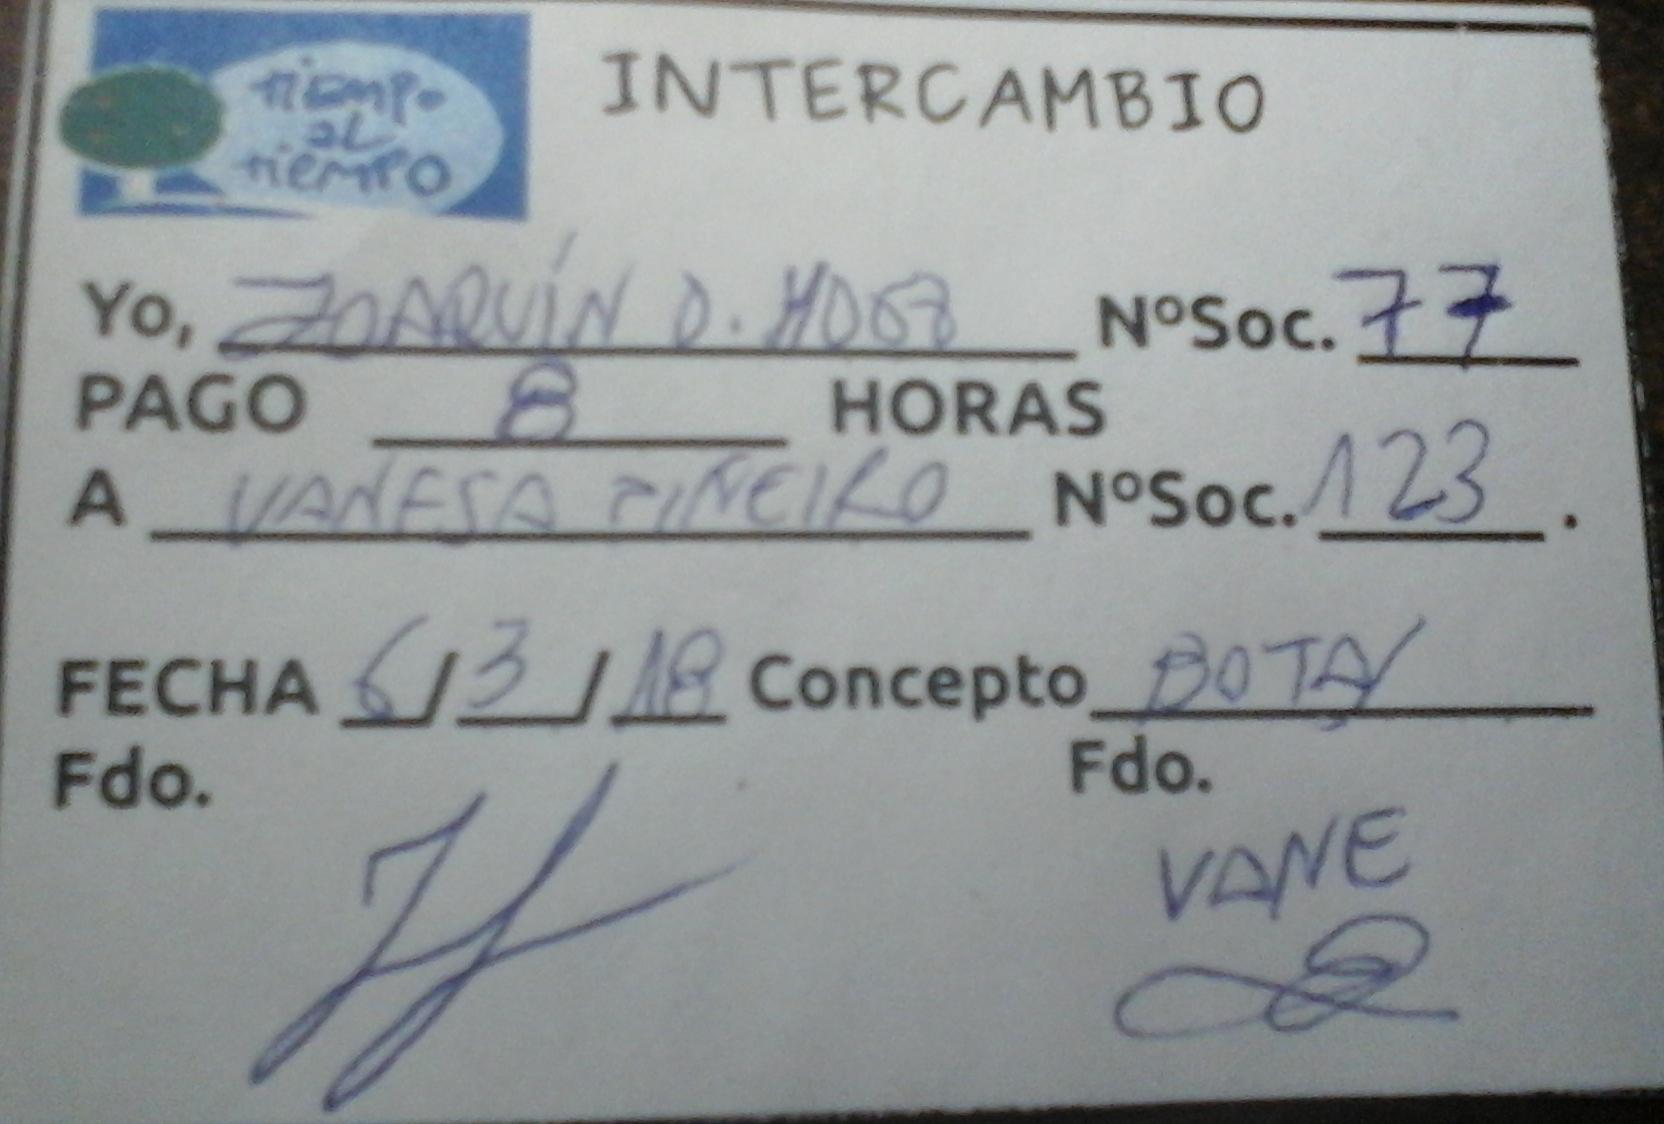 tiempo
al
tiempo
INTERCAMBIO
Yo, JOAQUÍN D. Nº Soc. 77
PAGO 8 HORAS
A VANESA PIÑEIRO Nº Soc. 123.
FECHA 6/3/18 Concepto BOTAS
Fdo. Fdo.
VANE